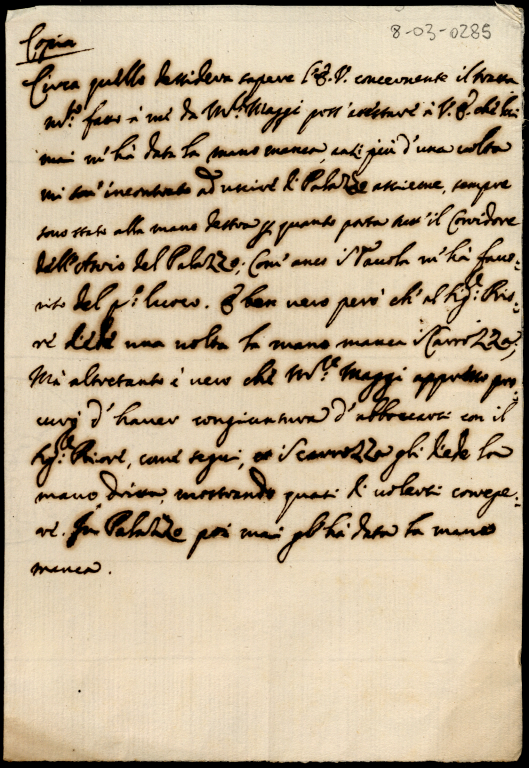 8-03-0285
Copia
Circa quello desidera sapere l'E.V. concernente il tratta
m.to fatto à me da Mr Maggi poss' assistare à V.E. che lui
mai m'hà data la mano manca, anti più d'una volta
mi son' incontrato ad uscire di Palazzo assieme, sempre
sono stato alla mano destra p quanto porta tutt' il Corridore
dell'Atrio del Palazzo; Com' anco i Tauola m'hà fauo-
rito del p.o luoco. E ben uero però ch' al Sig.r Prio-
re diede una uolta la mano manca i Carrozza;
Mà altretanto è uero che Mr Maggi appresso pro
curò d'hauer congiuntura d'abboccarsi con il
Sig.r Priore, come seguì, et i Carrozza gli diede la
mano dritta, mostrando quasi di uolersi corregge-
re. In Palazzo poi mai gl'hà data la mano
manca.